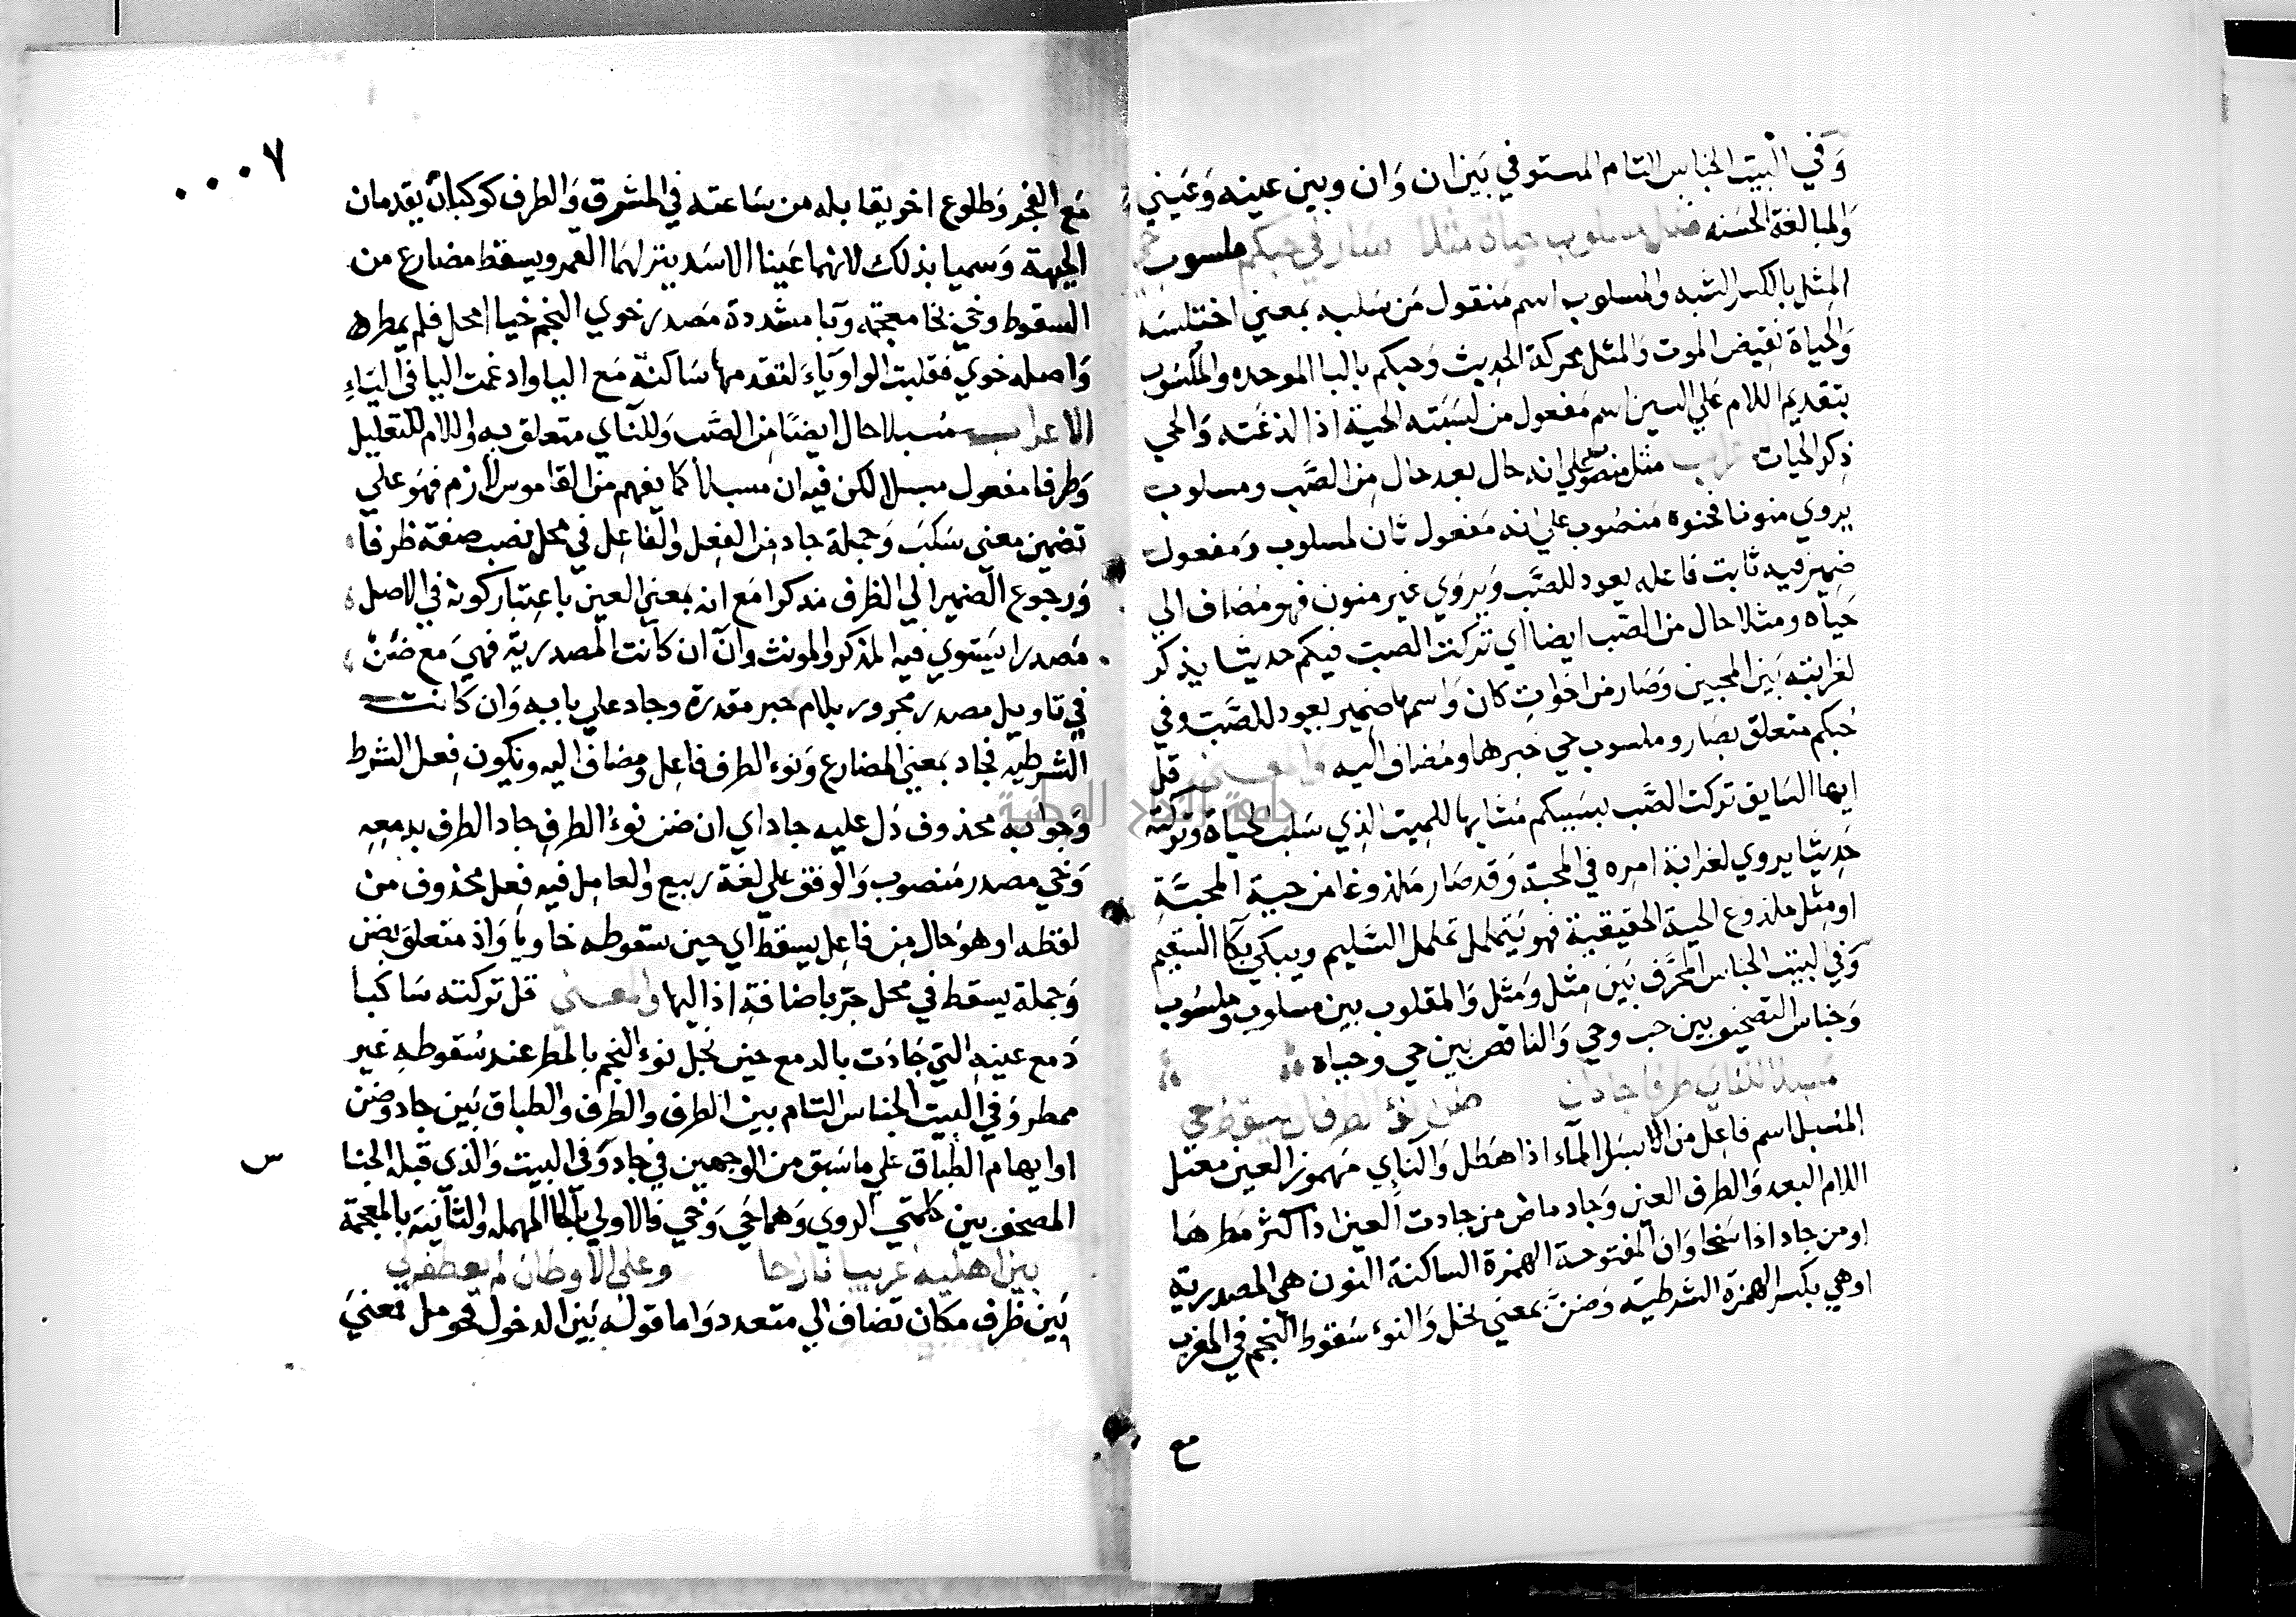 وَفي البيت الجناس التام المستوفي بَين ان وَان وبين عينه وَعَيني
وَالمبالغة الحسَنه مثل مسلوب حياة مثلا صار في حبكم ملسوب حي
المِثل بالكسر الشبه والمسلوب اسم مَنقول مَن سَلبه بمعني اختلسَه
وَالحياة نقيض الموت وَالمثل محركة الحديث وَحبكم بالبا الموحده والملسُوب
بتقديم اللام عَلي السين اسم مَفعول من لسَبَته الحية اذا لدغَته وَالحي
ذِكر الحيات مثل منصوب علي انه حال بعد حال مِن الصَّب ومسلوب
يروي منونا فحيوه مَنصُوب علي انه مَفعول ثان لمسلوب وَمفعول
ضمير فيه ثابت فاعله يعود للصَّب وَيروَي غير منون فهو مُضاف الي
حَياه ومثلا حال من الصَّب ايضا اي تركت الصب فيكم حديثا يذكر
لغرابته بَين المحبين وَصَار من اخوات كان وَاسمها ضمير يعود للصَّب وفي
حُبكم متعلق بصَار وملسوب حي خبرها ومُضاف اليه وَالمعـني قل
ايها السَايق تركت الصَّب بسَببكم مُشابها للميت الذِي سَلب الحياة وَتركته
حَديثا يروي لغرابة امره في المحبة وَقد صَار مَلدوغا من حية المحبَّة
اومِثل ملدوغ الحية الحقيقية فهو يَتململ تململ السَّليم ويبكي بكا السَقيم
وَفي البيت الجناس المحرَّف بَين مِثل وَمَثل وَالمقلوب بين مسلوب وملسُوب
وَجناس التصحيف بين حب وحي وَالناقص بين حي وحياه
مسبلا للناي طرفا جاد ان ضن نوء الطرف اذ يسقط خي
المُسبل اسم فاعِل من اسبَل الماء اذا هَطل وَالنأي مَهموز العين معتل
اللام البعد وَالطرف العين وَجاد ماض من جادت العين اذا كثر مَطرهَا
اومن جاد اذا سَخا وَان المفتوحة الهمزة الساكنة النون هي المصدرية
اوهي بكسر الهمزة الشرطيه وَضنَّ بمعني بخل وَالنوء سقوط النجم في المغرب
مع
٧
مَع الفجر وَطلوع اخر يقابله من سَاعته في المشرق وَالطرف كوكبان يقدمان
الجبهة وَسميا بذلك لانهما عَينا الاسَد ينزلهَا القمر ويسقط مضارع من
السقوط وخي بخا معجمة وَيا مشددة مَصدر خوي النجم خيا امحل فلم يمطره
وَاصله خوي فقلبت الواو يَاءً لتقدمها سَاكنة مَع اليا وادغمت اليا في اليَاءِ
الاعراب مُسبلا حال ايضًا من الصَّب وَللنأي متعلق به وَاللام للتعليل
وَطرفا مفعول مسبلا لكن فيه ان مُسبلا كما يفهم من القاموس لازم فهوَ علي
تضمين معني سَكبَ وَجملة جاد مِن الفِعل وَالفاعِل في محل نصب صفة طرفا
وَرجوع الضمير الي الطرف مذكرا مَع انه بمعني العين باعِتبار كونه في الاصل
مَصدرا يَستوي فيه المذكر وَالمونث وان ان كانت المصدريّة فهيَ مع ضنَّ
في تاويل مصدر مجرور بلام جر مقدرة وجاد علي بابه وَان كانت
الشرطيه فجاد بمعني المضارع وَنوء الطرف فاعل ومضاف اليه ويكون فِعل الشرط
وَجوابه محذوف دَل عليه جاد اي ان ضن نوء الطرف جاد الطرف بدمعِهِ
وَخي مصدر مَنصوب وَالوقف علي لغة ربيع وَالعامِل فيه فعل محذوف من
لفظه اوهوَ حال مِن فاعِل يسقط اي حين سقوطه خاويا وَاذ متعلق بضن
وَجملة يسقط في محل جرّ باضافة اذ اليها وَالمعـني قل تركته سَاكبا
دَمع عينه التي جَادَت بالدمع حين بخل نوء النجم بالمطر عند سُقوطه غير
ممطر وَفي البيت الجناس التام بين الطرف والطرف والطباق بَين جاد وضن
اوايهام الطبَاق علي ماسَبق من الوجهين في جاد وَفي البيت وَالذي قبله الجنا
س
المصحف بين كلمتي الروي وَهما حَي وَخي فالاولي بالحا المهمله وَالثانية بالمعجمة
بين اهليه غريبا نازحا وعلي الاوطان لم يعطفه لي
بَين ظرف مكان تضاف الي متعدد وَاما قوله بَين الدخول فحومل فمعنيَ
جامعة النجاح الوطنية